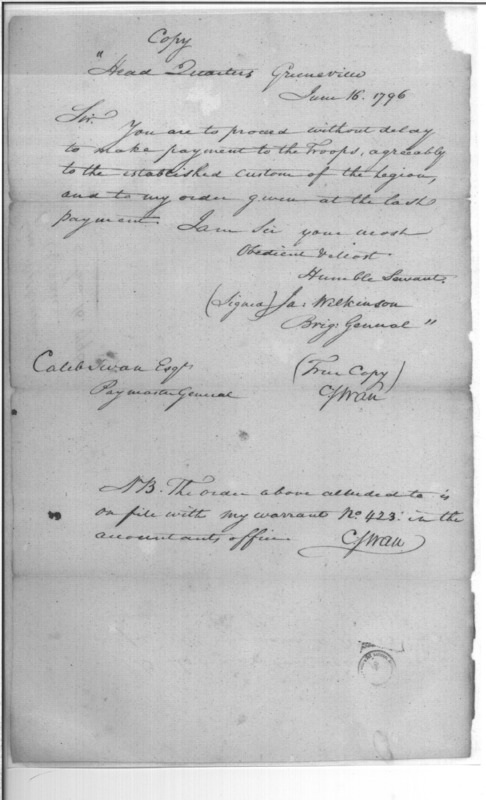 Copy
"Head Quarters Greeneville
June 16. 1796
Sir.
You are to proceed without delay
to make payment to the Troops, agreeably
to the established custom of the Legion,
and to my order given at the last
payment. I am Sir your most
Obedient & Most
Humble Servant,
(Signed) Ja: Wilkinson
Brig: General"
Caleb Swan Esqr.
Paymaster General
(True Copy)
CSwan
NB. The order above alluded to is
on file with my warrant No. 423: in the
accountants office.
CSwan.